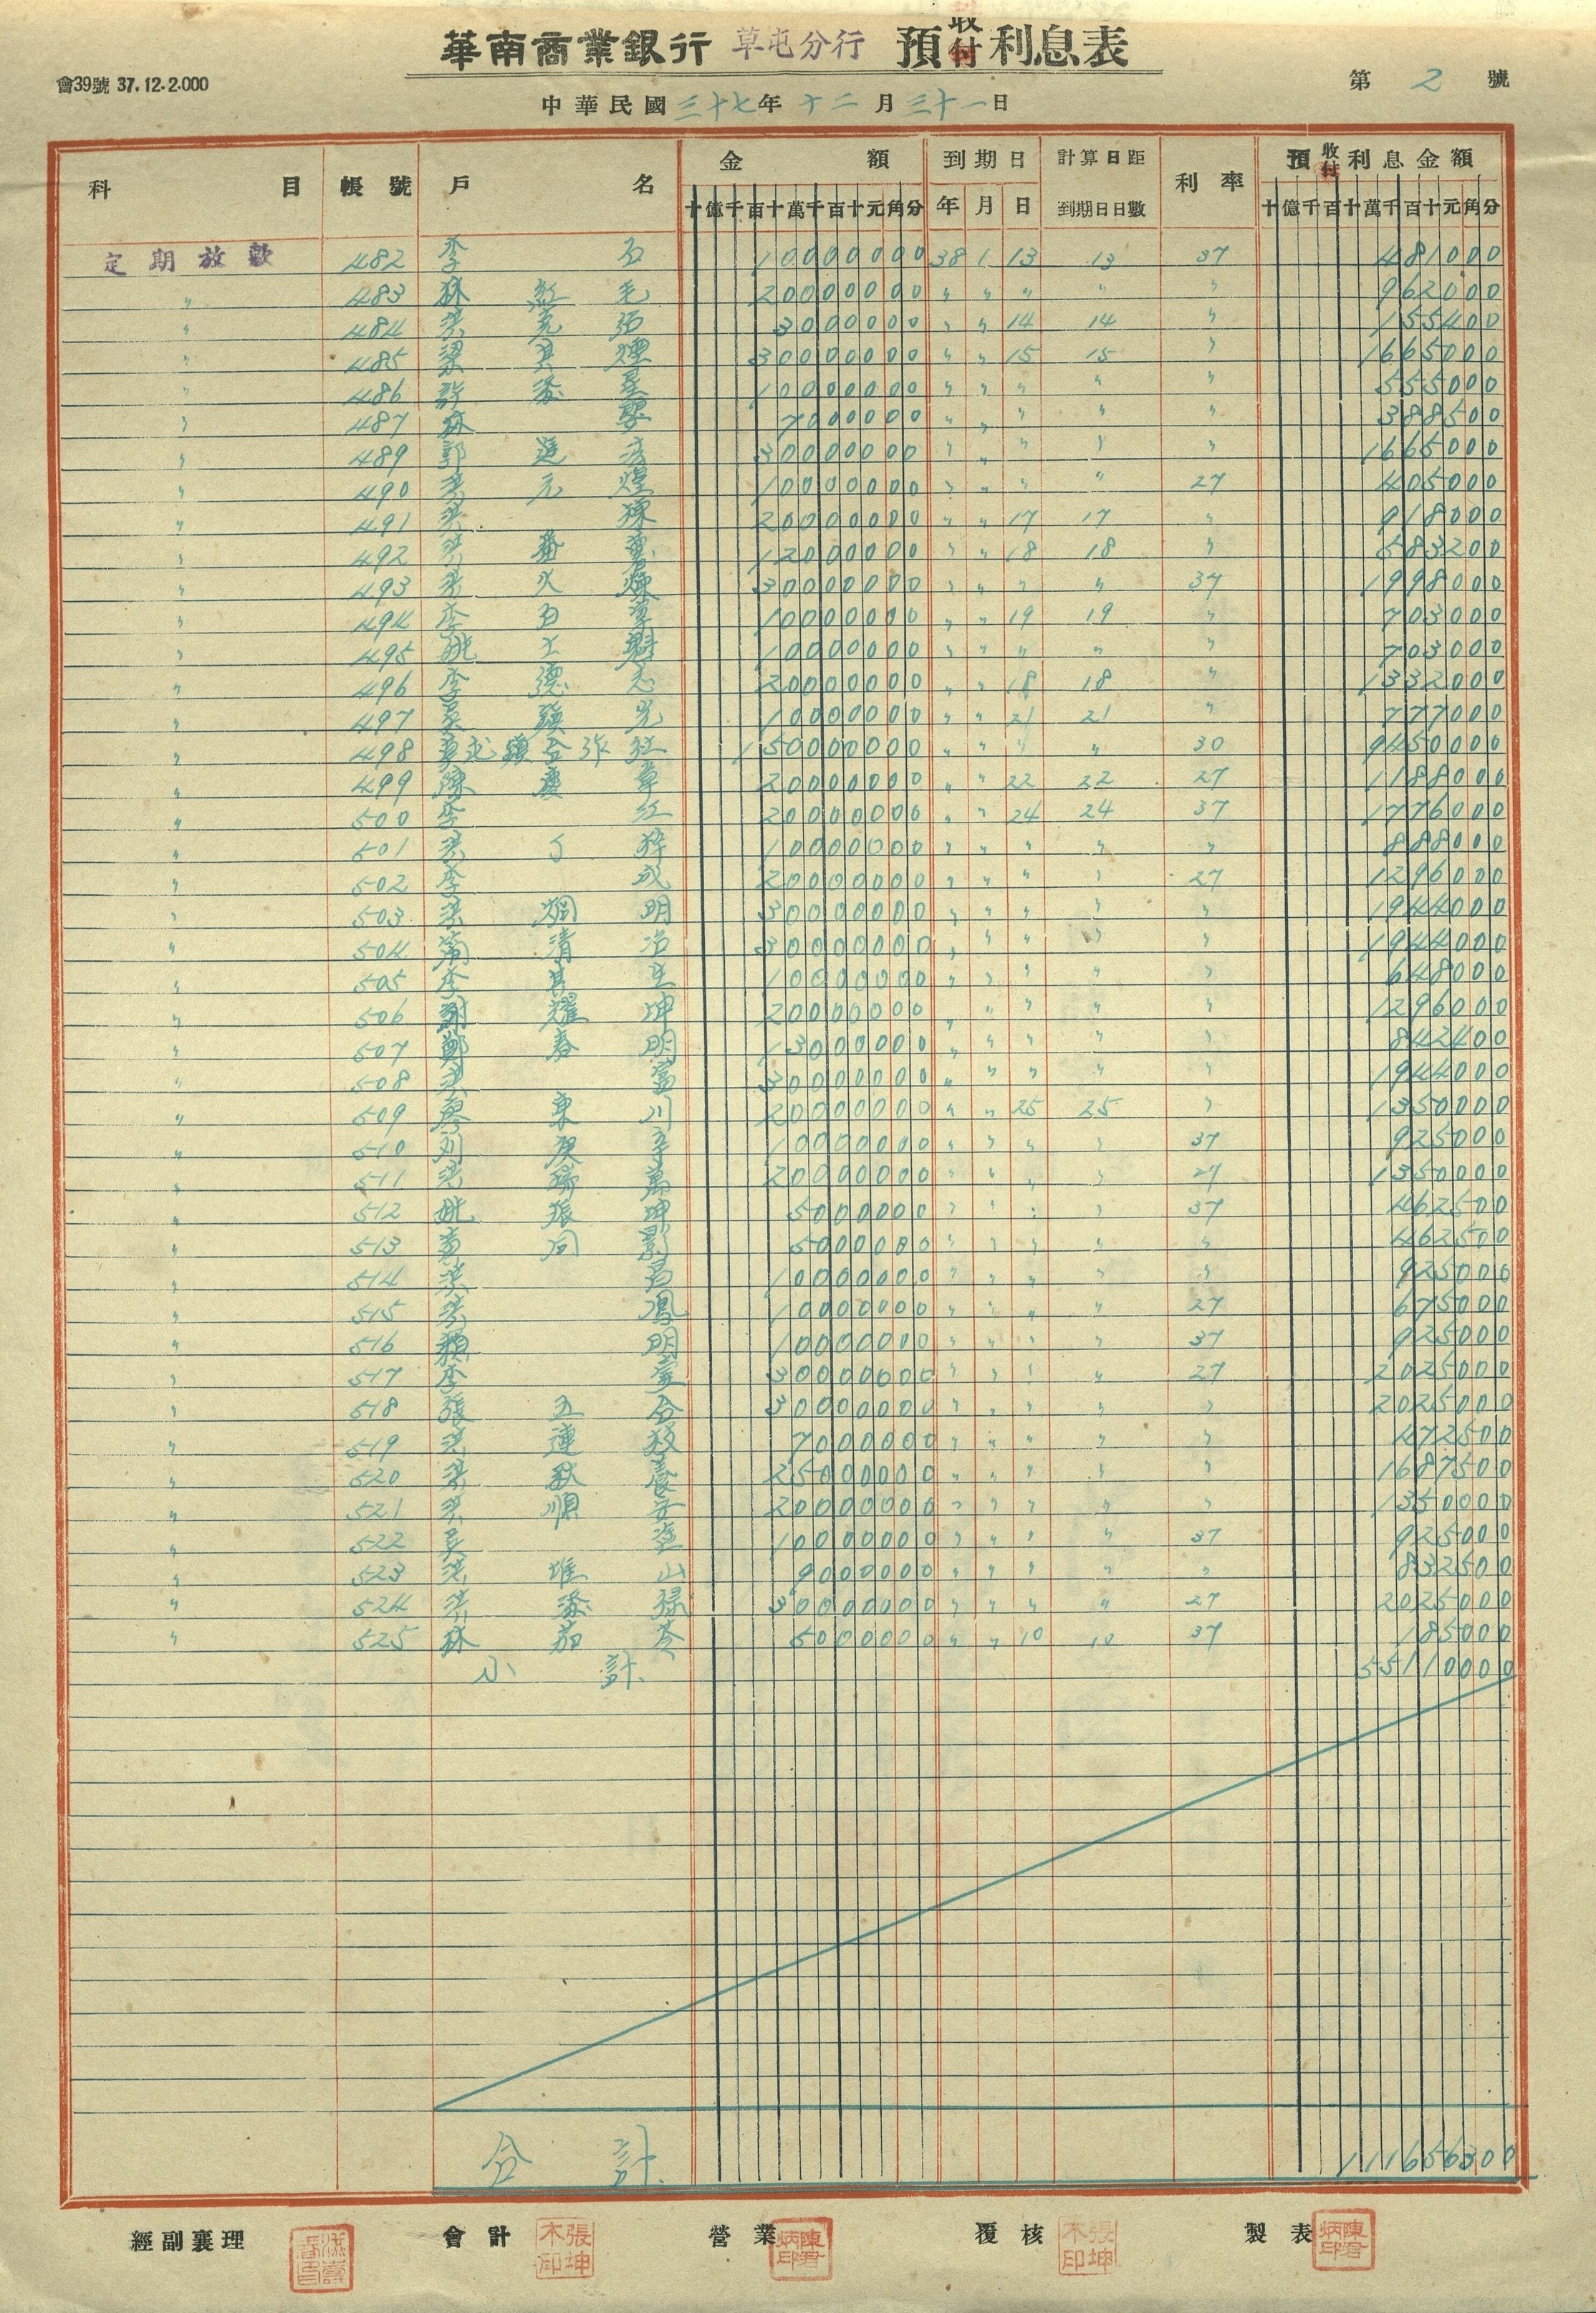 華南商業銀行 草屯分行 預收付利息表
會39號 37.12.2.000
第 2 號
中華民國三十七年十二月三十一日
科目 帳號 戶名 金額 到期日 計算日距到期日日數 利率 預收付利息金額
十億千百十萬千百十元角分 年 月 日 十億千百十萬千百十元角分
定期放款 482 李 石 10000000 38 1 13 13 37 481000
〃 483 林 紅 毛 20000000 〃 〃 〃 〃 〃 962000
〃 484 洪 克 3000000 〃 〃 14 14 〃 155400
〃 485 梁 其 煙 30000000 〃 〃 15 15 〃 1665000
〃 486 許 添 星 10000000 〃 〃 〃 〃 〃 555000
〃 487 林 7000000 〃 〃 〃 〃 〃 388500
〃 489 郭 30000000 〃 〃 〃 〃 〃 1665000
〃 490 洪 元 煌 10000000 〃 〃 〃 〃 27 405000
〃 491 洪 20000000 〃 〃 17 17 〃 918000
〃 492 洪 番 12000000 〃 〃 18 18 〃 583200
〃 493 洪 火 煉 30000000 〃 〃 〃 〃 37 1998000
〃 494 李 10000000 〃 〃 19 19 〃 703000
〃 495 姚 10000000 〃 〃 〃 〃 〃 703000
〃 496 李 德 志 20000000 〃 〃 18 18 〃 1332000
〃 497 吳 10000000 〃 〃 21 21 〃 777000
〃 498 草屯鎮合作社 150000000 〃 〃 〃 〃 30 9450000
〃 499 陳 慶 章 20000000 〃 〃 22 22 27 1188000
〃 500 李 紅 20000000 〃 〃 24 24 37 1776000
〃 501 洪 10000000 〃 〃 〃 〃 〃 888000
〃 502 李 成 20000000 〃 〃 〃 〃 27 1296000
〃 503 洪 烱 明 30000000 〃 〃 〃 〃 〃 1944000
〃 504 簡 清 30000000 〃 〃 〃 〃 〃 1944000
〃 505 李 其 生 10000000 〃 〃 〃 〃 〃 648000
〃 506 謝 耀 坤 20000000 〃 〃 〃 〃 〃 1296000
〃 507 鄭 春 明 13000000 〃 〃 〃 〃 〃 842400
〃 508 洪 富 30000000 〃 〃 〃 〃 〃 1944000
〃 509 廖 東 川 20000000 〃 〃 25 25 〃 1350000
〃 510 刘 庚 辛 10000000 〃 〃 〃 〃 37 925000
〃 511 洪 瑞 萬 20000000 〃 〃 〃 〃 27 1350000
〃 512 姚 振 坤 5000000 〃 〃 〃 〃 37 462500
〃 513 黃 同 5000000 〃 〃 〃 〃 〃 462500
〃 514 洪 10000000 〃 〃 〃 〃 〃 925000
〃 515 洪 鳳 10000000 〃 〃 〃 〃 27 675000
〃 516 賴 明 10000000 〃 〃 〃 〃 37 925000
〃 517 李 30000000 〃 〃 〃 〃 27 2025000
〃 518 張 五 合 30000000 〃 〃 〃 〃 〃 2025000
〃 519 洪 連 7000000 〃 〃 〃 〃 〃 472500
〃 520 洪 25000000 〃 〃 〃 〃 〃 1687500
〃 521 洪 順 安 20000000 〃 〃 〃 〃 〃 1350000
〃 522 吳 10000000 〃 〃 〃 〃 37 925000
〃 523 洪 堆 山 9000000 〃 〃 〃 〃 〃 832500
〃 524 洪 添 祿 30000000 〃 〃 〃 〃 27 2025000
〃 525 林 茄 苳 5000000 〃 〃 10 10 37 185000
小計 55110000
合計 111656300
經副襄理 會計 張坤木印 營業 陳君炳印 覆核 張坤木印 製表 陳君炳印